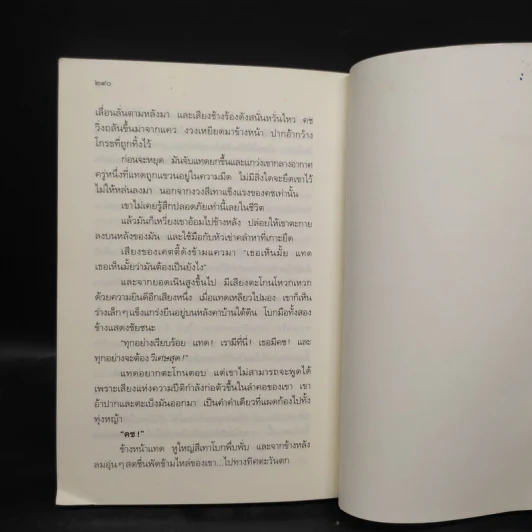 ๒๙๐
เลื่อนลั่นตามหลังมา และเสียงช้างร้องดังสนั่นหวั่นไหว คช
วิ่งถลันขึ้นมาจากแคว งวงเหยียดมาข้างหน้า ปากอ้ากว้าง
โกรธที่ถูกทิ้งไว้
ก่อนจะหยุด มันจับแทดยกขึ้นและแกว่งเขากลางอากาศ
ครู่หนึ่งที่แทดถูกแขวนอยู่ในความมืด ไม่มีสิ่งใดจะยึดเขาไว้
ไม่ให้หล่นลงมา นอกจากงวงสีเทาแข็งแรงของคชเท่านั้น
เขาไม่เคยรู้สึกปลอดภัยเท่านี้เลยในชีวิต
แล้วมันก็เหวี่ยงเขาอ้อมไปข้างหลัง ปล่อยให้เขาตะกาย
ลงบนหลังของมัน และใช้มือกับหัวเข่าคลำหาที่เกาะยึด
เสียงของเคตตี้ดังข้ามแควมา "เธอเห็นมั้ย แทด
เธอเห็นมั้ยว่ามันต้องเป็นยังไง"
และจากยอดเนินสูงขึ้นไป มีเสียงตะโกนโหวกเหวก
ด้วยความยินดีอีกเสียงหนึ่ง เมื่อแทดเหลียวไปมอง เขาก็เห็น
ร่างเล็กๆ แข็งแกร่งยืนอยู่บนหลังคาบ้านใต้ดิน โบกมือทั้งสอง
ข้างแสดงชัยชนะ
"ทุกอย่างเรียบร้อย แทด! เรามีที่นี่! เธอมีคช! และ
ทุกอย่างจะต้อง วิเศษสุด!"
แทดอยากตะโกนตอบ แต่เขาไม่สามารถจะพูดได้
เพราะเสียงแห่งความปีติกำลังก่อตัวขึ้นในลำคอของเขา เขา
อ้าปากและตะเบ็งมันออกมา เป็นคำคำเดียวที่แผดก้องไปทั้ง
ทุ่งหญ้า
"คช!"
ข้างหน้าแทด หูใหญ่สีเทาโบกพึ่บพั่บ และจากข้างหลัง
ลมอุ่นๆ สดชื่นพัดข้ามไหล่ของเขา...ไปทางทิศตะวันตก